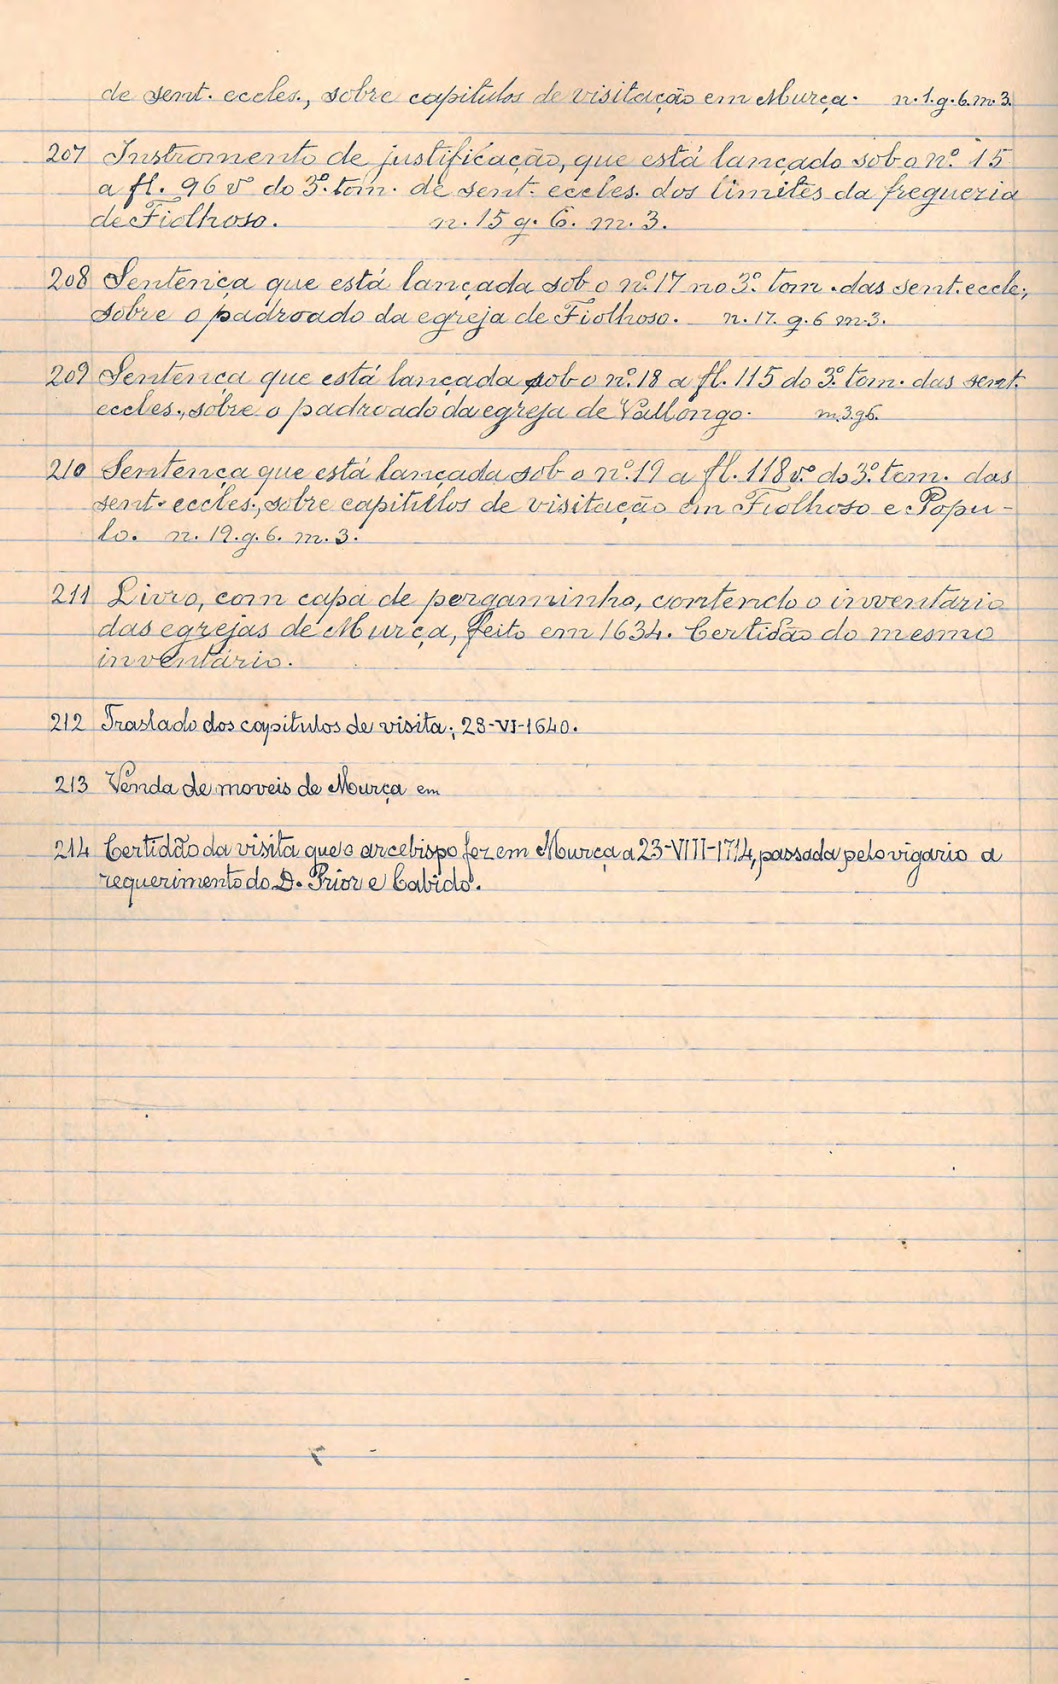 de sent. eccles., sobre capitulos de visitação em Murça. n.1.g.6.m.3.
207 Instromento de justificação, que está lançado sob o nº. 15
a fl. 96 vº do 3º. tom. de sent. eccles. dos limites da freguezia
de Fiolhoso. n. 15 g. 6. m. 3.
208 Sentença que está lançada sob o nº.17 no 3º. tom. das sent. eccle.,
sobre o padroado da egreja de Fiolhoso. n. 17. g. 6 m. 3.
209 Sentença que está lançada sob o nº.18 a fl. 115 do 3º. tom. das sent.
eccles., sobre o padroado da egreja de Vallongo. m.3.g6.
210 Sentença que está lançada sob o nº.19 a fl. 118 vº do 3º. tom. das
sent. eccles., sobre capitulos de visitação em Fiolhoso e Popu-
lo. n. 19. g. 6. m. 3.
211 Livro, com capa de pergaminho, contendo o inventario
das egrejas de Murça, feito em 1634. Certidão do mesmo
inventário.
212 Traslado dos capitulos de visita; 23-VI-1640.
213 Venda de moveis de Murça em
214 Certidão da visita que o arcebispo fez em Murça a 23-VIII-1714, passada pelo vigario a
requerimento do D. Prior e Cabido.